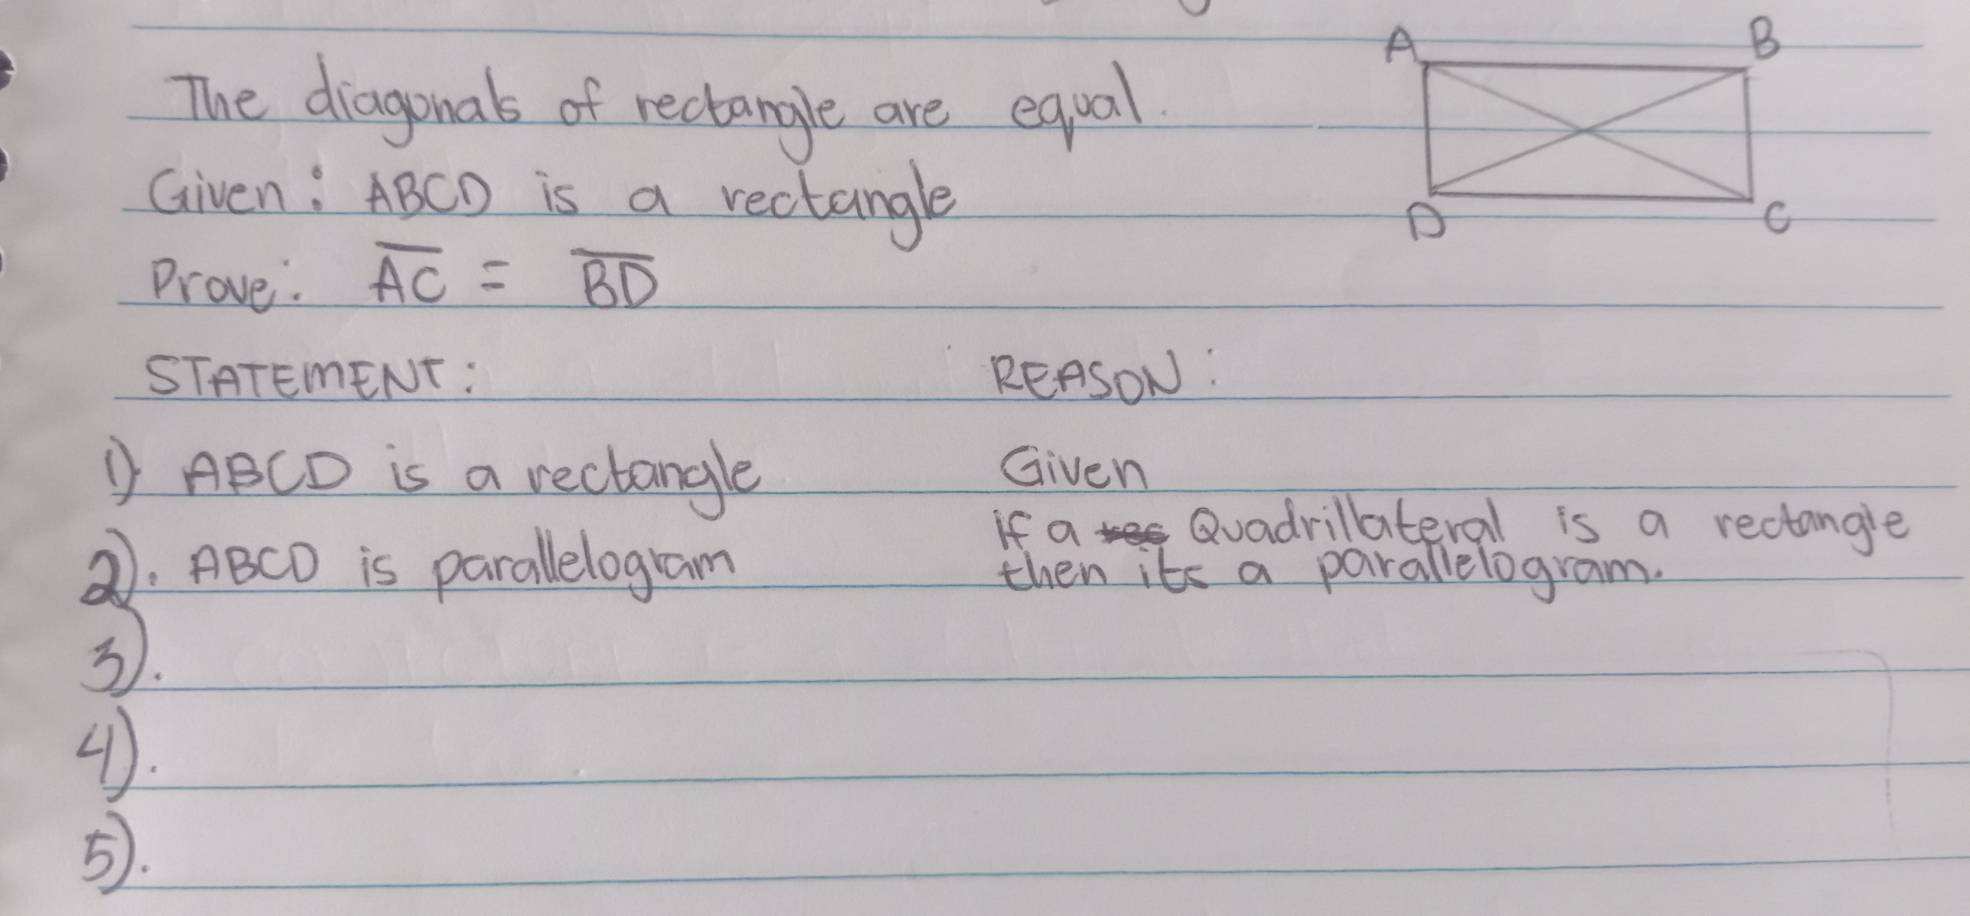 A B
The diagonals of rectangle are equal.
Given: ABCD is a rectangle
D C
Prove: AC = BD
STATEMENT: REASON:
1) ABCD is a rectangle Given
2). ABCD is parallelogram if a Quadrillateral is a rectangle
then its a parallelogram.
3).
4).
5).